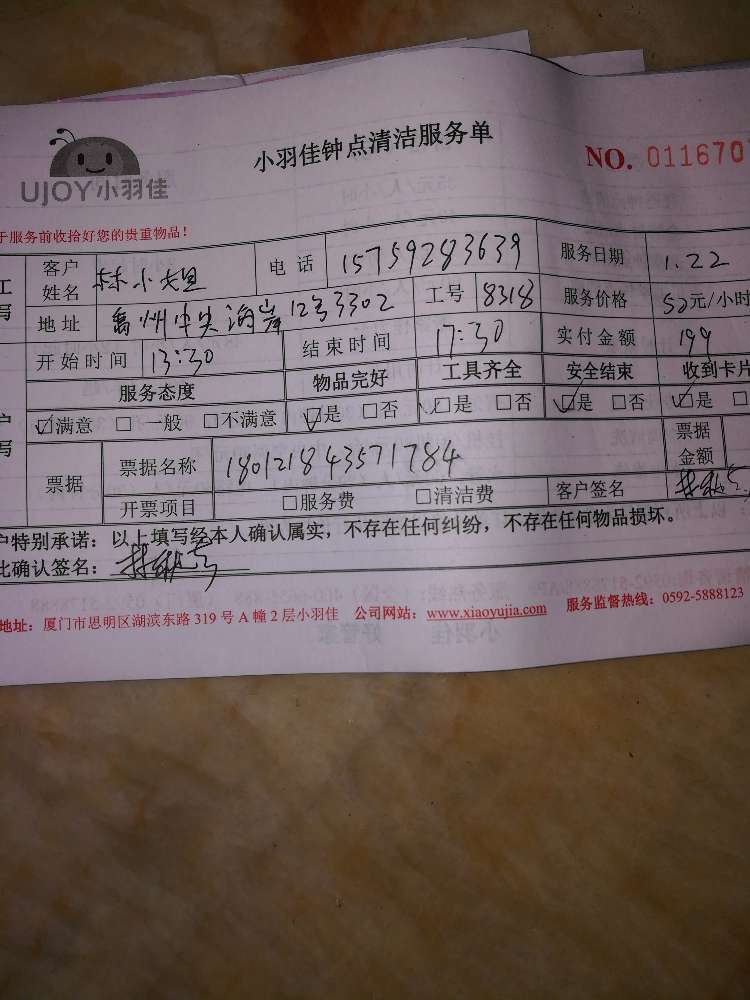 UJOY小羽佳
小羽佳钟点清洁服务单
NO. 0116707
于服务前收拾好您的贵重物品！
工 客户姓名 林小姐 电 话 15759283639 服务日期 1.22
写 地址 禹州中央海岸12号3302 工号 8318 服务价格 52元/小时
开始时间 13:30 结束时间 17:30 实付金额 199
服务态度 物品完好 工具齐全 安全结束 收到卡片
户 ☑满意 □ 一般 □不满意 ☑是 □否 ☑是 □否 ☑是 □否 ☑是 □
写 票据 票据名称 180121843571784 票据金额
开票项目 □服务费 □清洁费 客户签名
户特别承诺：以上填写经本人确认属实，不存在任何纠纷，不存在任何物品损坏。
此确认签名：
地址：厦门市思明区湖滨东路 319 号 A 幢 2 层小羽佳 公司网站：www.xiaoyujia.com 服务监督热线：0592-5888123